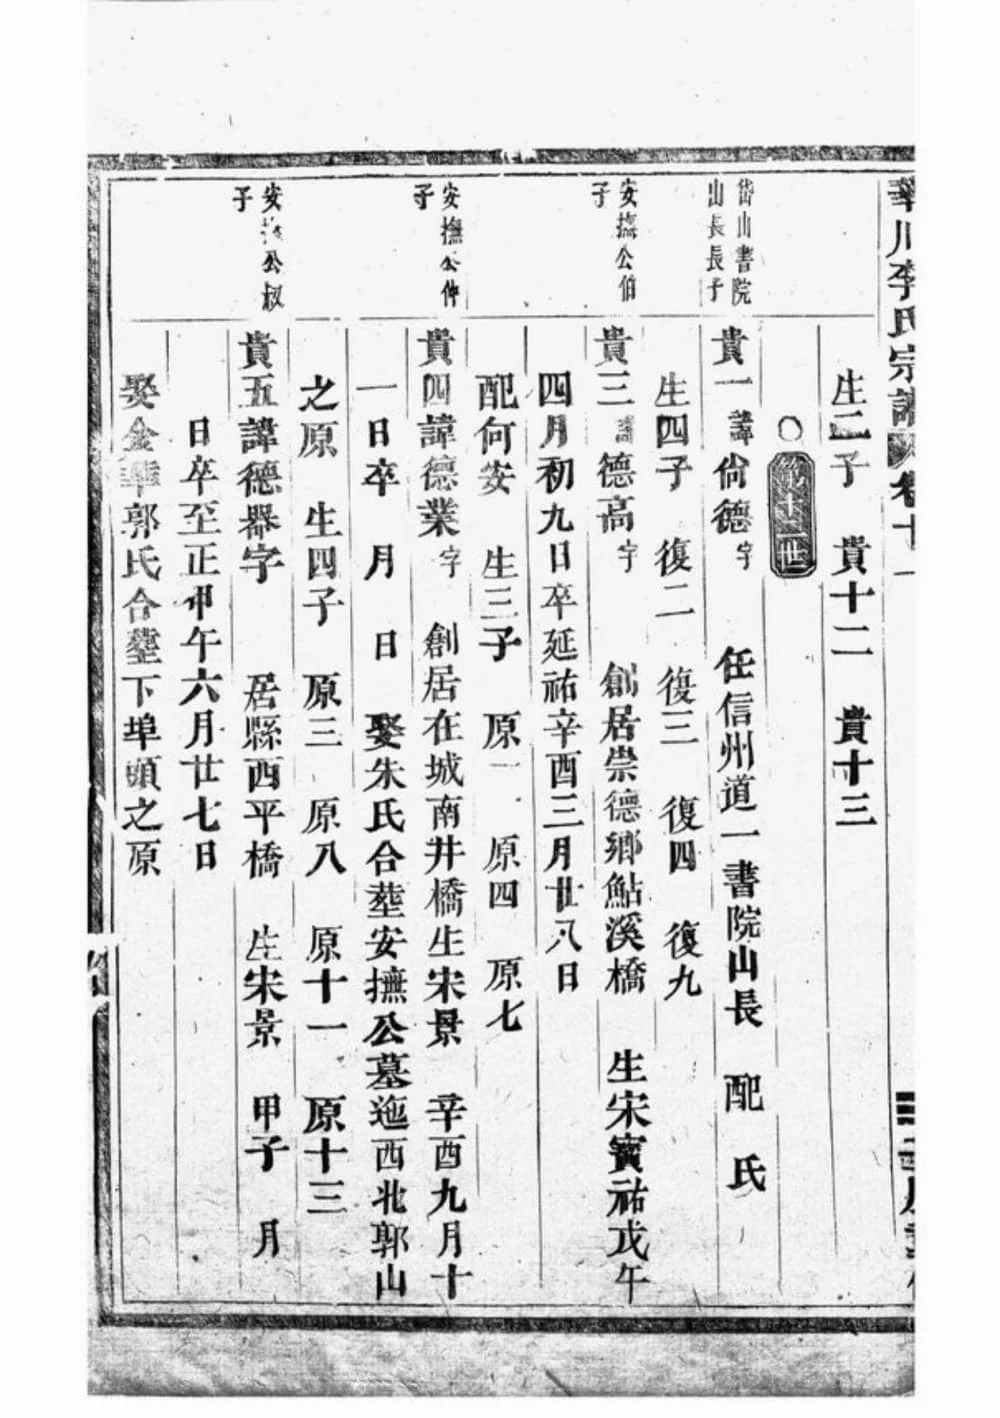 華川李氏宗譜 卷十一
生二子 貴十二 貴十三
○第十一世
岱山書院
山長長子
貴一諱尙德字 任信州道一書院山長 配 氏
生四子 復二 復三 復四 復九
安撫公伯
子
貴三諱德高字 創居崇德鄉鮎溪橋 生宋寶祐戊午
四月初九日卒延祐辛酉三月廿八日
配何安 生三子 原一 原四 原七
安撫公仲
子
貴四諱德業字 創居在城南井橋生宋景 辛酉九月十
一日卒 月 日 娶朱氏合塟安撫公墓迤西北郭山
之原 生四子 原三 原八 原十一 原十三
安撫公叔
子
貴五諱德器字 居縣西平橋 生宋景 甲子 月
日卒至正甲午六月廿七日
娶金華郭氏合塟下埠頭之原